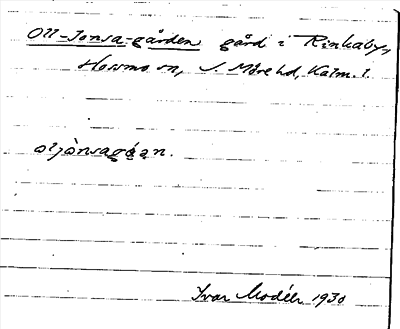 Oll-Jonsa-gården gård i Rinkaby,
Hossmo sn, S. Möre hd, Kalm. l.
oljònsagɑ́ɑn.
Ivar Modéer 1930